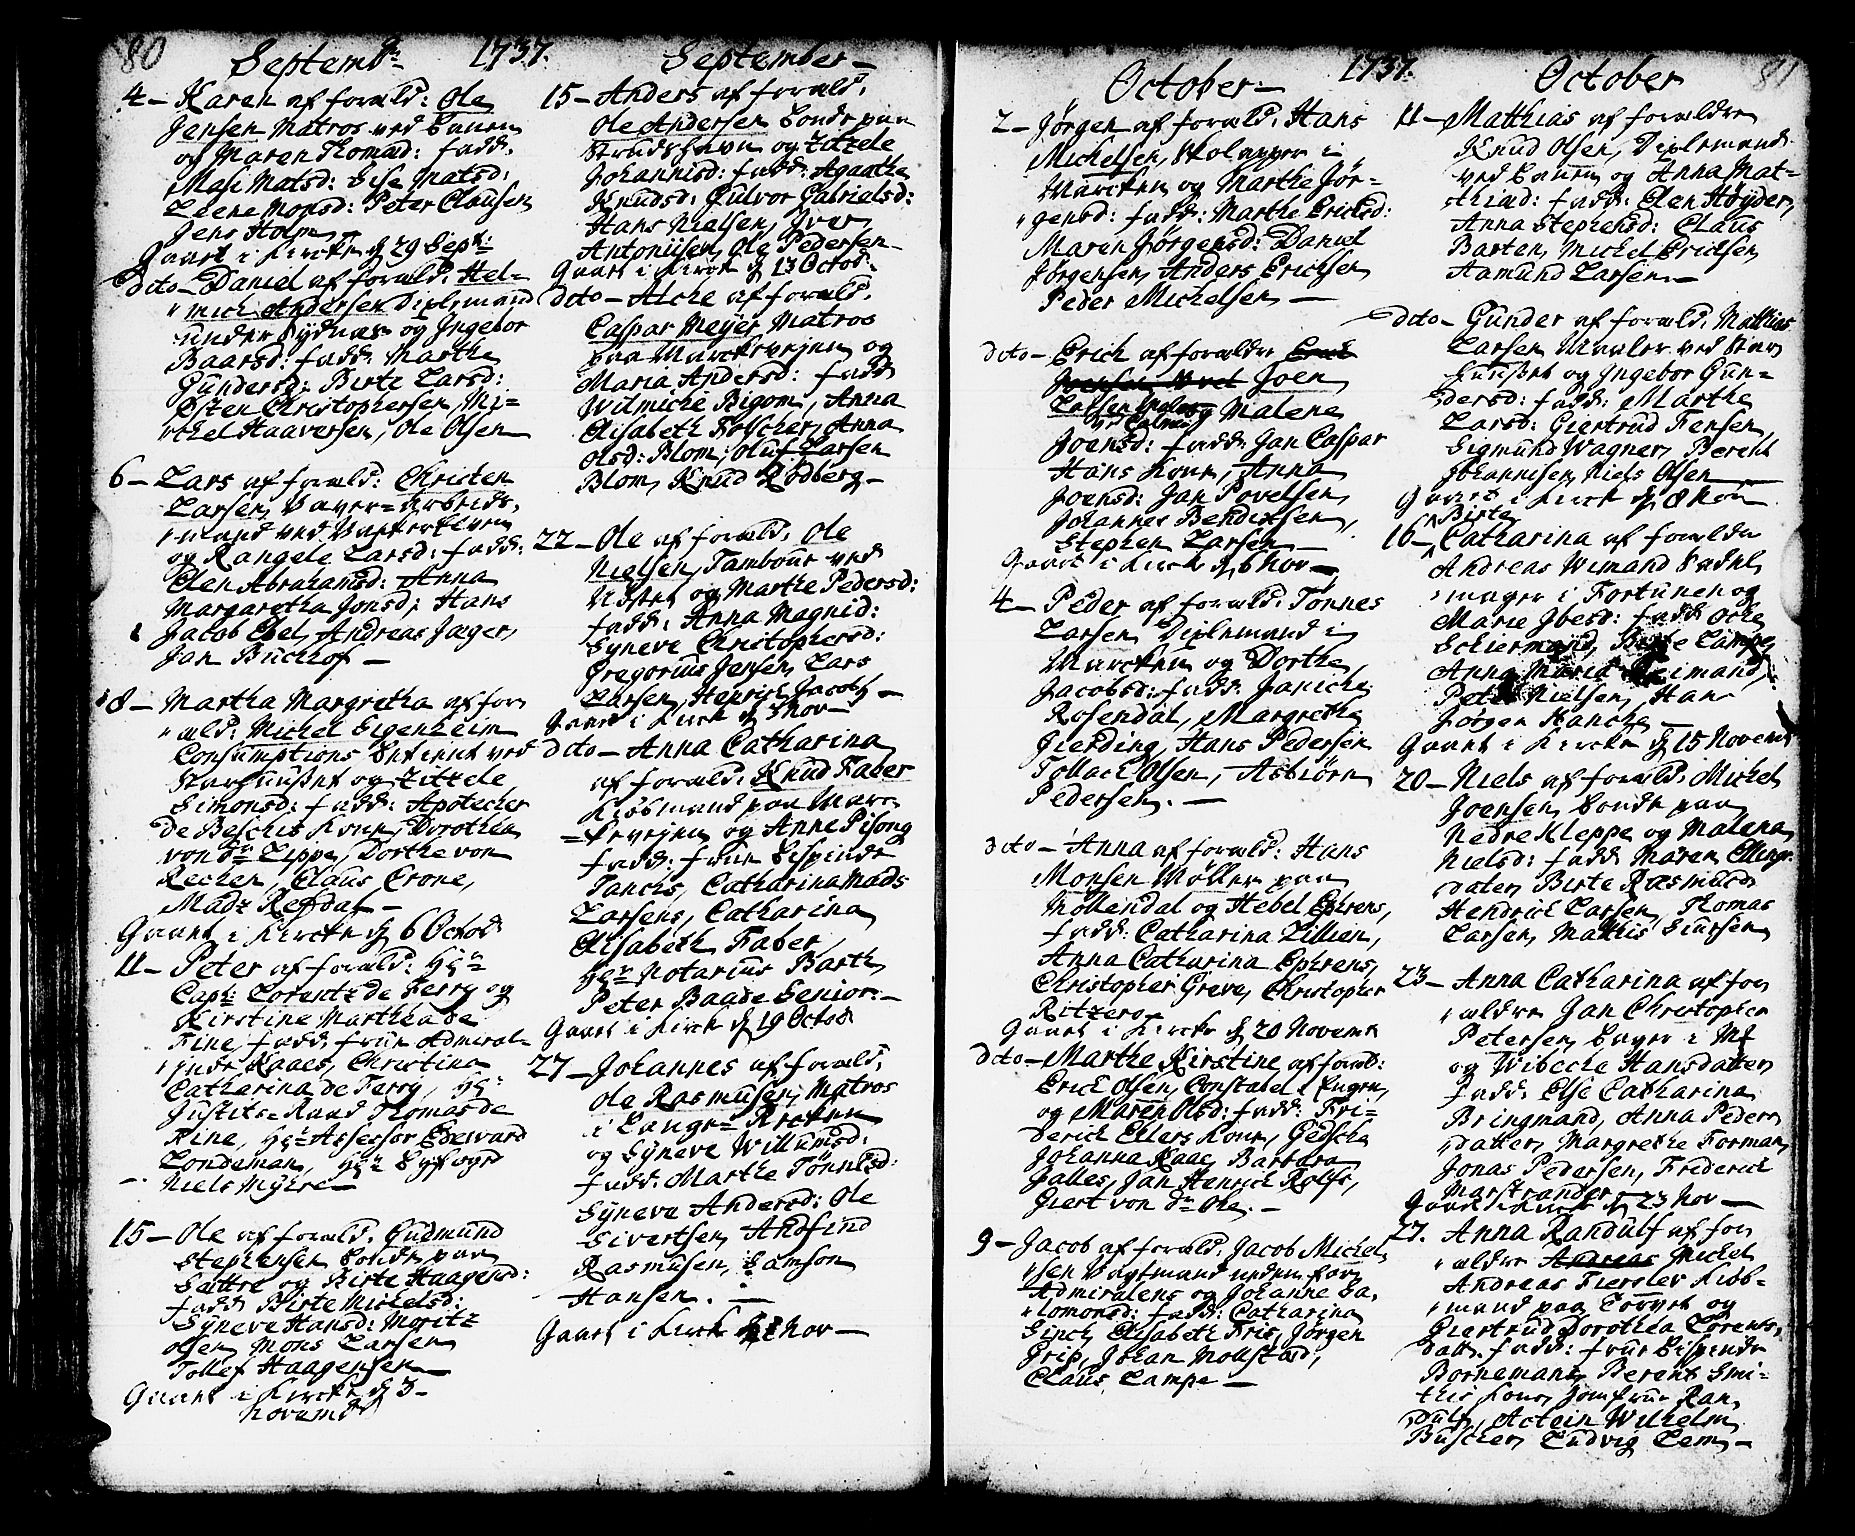 80
Septembr. 1737. September
4 - Karen af foræld: Ole
Jensen Matros ved
og Maren Thomasd: fadd:
Masi Matsd: Lise Matsd:
Leene Monsd: Peter Clausen
Jens Holm
Gaaet i Kircke d 29 Sept:
Dito - Daniel af foræld: Hel-
mich Andersen Diplemand
under Sydnæs og Ingebor
Baarsd: fadd: Marthe
Gundersd: Birte Larsd:
Esten Christophersen, Mi-
chel Haaversen, Ole Olsen
6 - Lars af foræld: Christen
Larsen, Arbeids-
mand ved
og Rangele Larsd: fadd:
Elen Abrahamsd: Anna
Margaretha Jonsd; Hans
Jacob Ebel, Andreas Jæger,
Jan Buchhof -
8 - Martha Margretha af for-
æld: Michel Eigenheim
Consumptions betient ved
og Zitzele
Simonsd: fadd: Apotecher
de Besches Kone, Dorothea
von der Lippe, Dorthe von
Rechen, Claus Crone,
Madz Refdal -
Gaaet i Kircke d 6 Octob
11 - Peter af foræld: Hr
Capt: Lorentz de Ferry og
Kirstine Marthea de
Fine, fadd: frue Admiral-
inde Kaaes, Christina
Catharina de Ferry, Hr
Justits-Raad Thomas de
Fine, Hr Assessor Edeward
Londeman, Hr Byfogd
Niels Myhre -
15 - Ole af foræld: Gudmund
Stephensen bonde paa
Sættre og Birte Haagensd:
fadd Birte Michelsd:
Syneve Hansd: Moritz
Olsen Mons Larsen
Tollef Haagensen
Gaaet i Kircke d 3
Novemb
15 - Anders af foræld:
Ole Andersen bonde paa
Strudshavn og Zitzele
Johannisd: fadd: Agaathe
Knudsd: Gulvor Gabrielsd:
Hans Nielsen, Iver
Antoniisen, Ole Pedersen
Gaaet i Kircke d 13 Octob:
Dito - Alche af foræld:
Caspar Meyer Matros
paa Marckeveyen og
Maria Andersd: fadd
Wilmiche Bigom, Anna
Elisabeth Fischer, Anna
Olsd: Blom; Oluf Larsen
Blom, Knud Rødberg -
22 - Ole af foræld: Ole
Nielsen, Tambour ved
Nøstet og Marthe Pedersd:
fadd: Anna Magnid:
Syneve Christophersd:
Gregorius Jensen, Lars
Larsen, Henrich Jacobs -
Gaaet i Kirck d 3 Nov -
Dito - Anna Catharina
af foræld: Knud Faber
Kiøbmand paa Marc-
keveyen og Anne Pisong
fadd: frue Bispinde
Tanchs, Catharina Mads
Larsens, Catharina
Elisabeth Faber,
Hr Notarius Barth
Peter Baade Senior. -
Gaaet i Kirck d 19 Octob
27 - Johannes af foræld:
Ole Rasmusen, Matros
i Lange-Recken
og Syneve Willumsd:
fadd: Marthe Tønnisd:
Syneve Andersd: Ole
Sivertsen, Andfind
Rasmusen, Samson
Hansen. -
Gaaet i Kirck Nov -
October - 1737. October 81
2 - Jørgen af foræld: Hans
Michelsen, Skolapper i
Marcken og Marthe Jør-
gensd: fadd: Marthe Erichsd:
Maren Jørgensd: Daniel
Jørgensen, Anders Erichsen
Peder Michelsen -
Dito - Erich af forældre
Joen
Larsen og Malene
Joensd: fadd: Jan Caspar
Hans Kone, Anna
Joensd: Jan Povelsen,
Johannes Bendixsen,
Stephen Larsen -
Gaaet i Kirck d 6 Nov -
4 - Peder af foræld: Tønnes
Larsen Diplemand i
Marcken og Dorthe
Jacobsd: fadd: Janiche
Rosendal, Margrethe
Gierding, Hans Pedersen
Tollach Olsen, Asbiørn
Pedersen. -
Dito - Anna af foræld: Hans
Monsen Møller paa
Møllendal og Hebel Ephrens,
fadd: Catharina Zillien,
Anna Catharina Ephrens,
Christopher Greve, Christopher
Ritzero -
Gaaet i Kircke d 20 Novemb
Dito - Marthe Kirstine af foræld:
Erich Olsen, Constabel i Engen,
og Maren Olsd: fadd: Fri-
derich Ehlers Kone, Gedsche
Johanna Kaas, Barbara
Jalles, Jan Henrich Rolfs,
Giert von der Ohe. -
9 - Jacob af foræld: Jacob Michel-
sen Vagtmand neden for
Admiralens og Johanne Sa-
lomonsd: fadd: Catharina
Sinch, Elisabeth Friis, Jørgen
Grip, Johan Mollstad,
Claus Lampe -
11 - Matthias af forældre
Knud Olsen, Diplemand
ved og Anna Mat-
thiasd: fadd: Elen Høyder,
Anna Stephensd: Claus
Barten, Michel Erichsen
Aamund Larsen. -
Dito - Gunder af foræld: Mathias
Larsen Maaler ved
huuset og Ingebor Gun-
dersd: fadd: Marthe
Larsd: Giertrud Jensen,
Sigmund Wagner, Berent
Johannisen, Niels Olsen
Gaaet i Kirck d 8 Nov
Birte
16 - Catharina af forældre
Andreas Wimand Sadel-
mager i Fortunen og
Marie Ibesd: fadd: Ocke
Schiermand, Birte Lampe,
Anna Maria Weimand,
Peter Nielsen, Hans
Jørgen Hancke -
Gaaet i Kircke d 15 Novemb
20 - Niels af foræld: Michel
Joensen, bonde paa
Nedre Kleppe og Malena
Nielsd: fadd: Maren Ellings-
datter, Birte Rasmusd:
Hendrich Larsen, Thomas
Larsen, Mathis Siursen
23 - Anna Catharina af for-
ældre Jan Christopher
Petersen, bager i
og Wibecke Hansdatter
fadd: Else Catharina
Bringmand, Anna Peders-
datter, Margrethe Forman,
Jonas Pedersen, Frederich
Marstrander
Gaaet i Kirck d 23 Nov -
27. Anna Randulf af for-
ældre Andreas Michel
Andreas Fiersler Kiøb-
mand paa og
Giertrud Dorothea Lorents-
datt. fadd: frue Bispinde
Bornemann, Berent Smi-
ths Kone, Jomfrue Ran-
dulf, Actein Wilhelm
Buscher, Ludvig Lem -